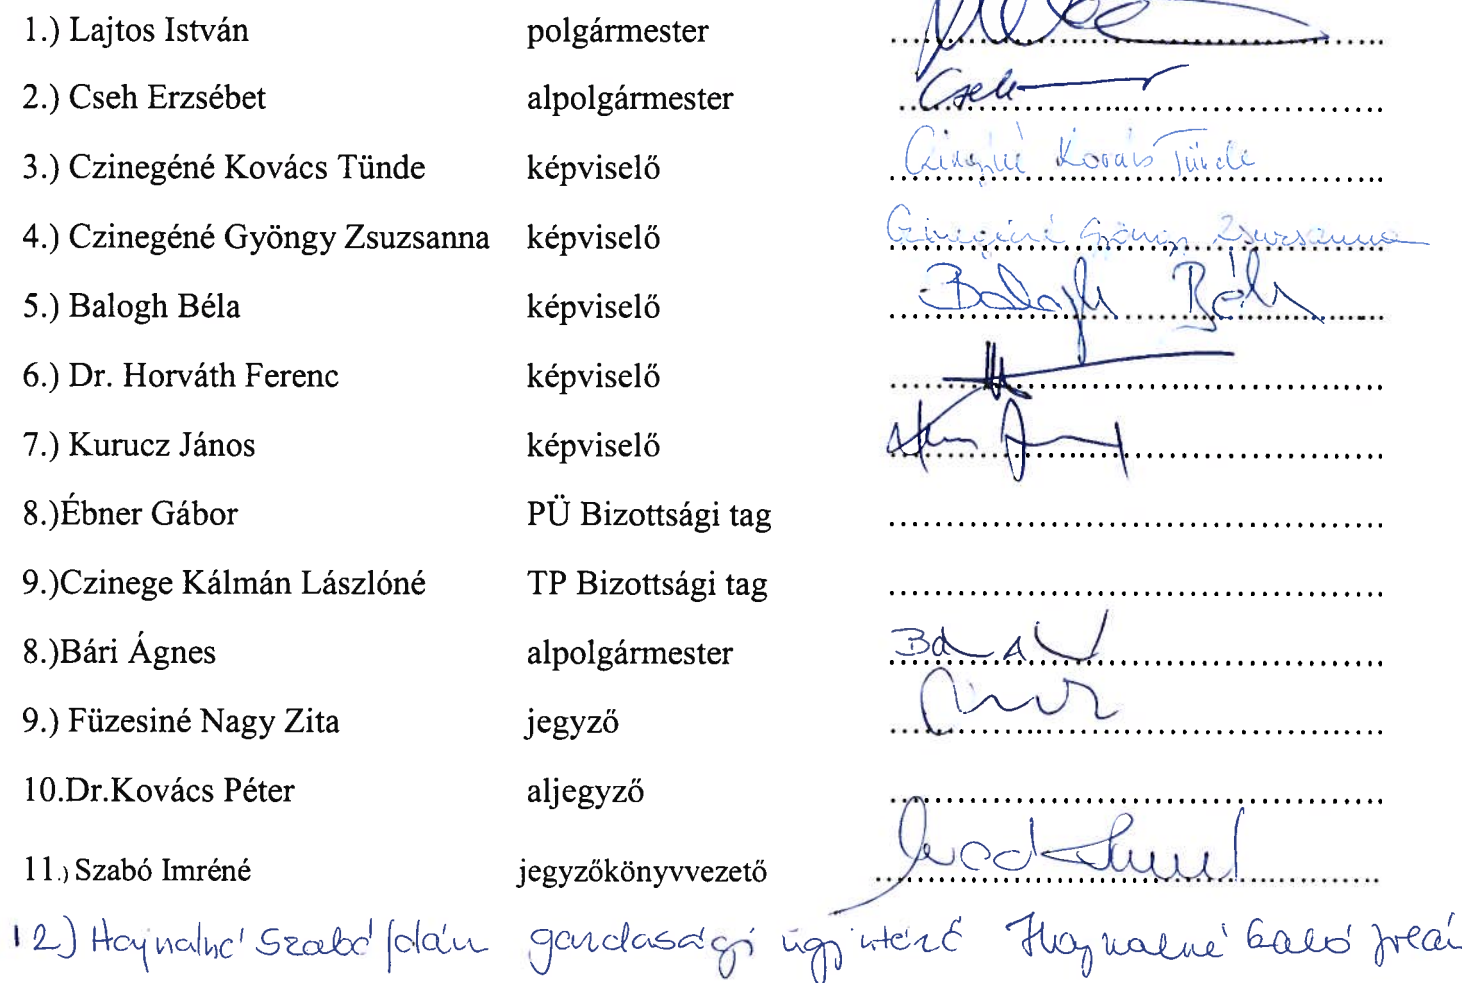 1.) Lajtos István polgármester
2.) Cseh Erzsébet alpolgármester Cseh
3.) Czinegéné Kovács Tünde képviselő Czinegéné Kovács Tünde
4.) Czinegéné Gyöngy Zsuzsanna képviselő Czinegéné Gyöngy Zsuzsanna
5.) Balogh Béla képviselő Balogh Béla
6.) Dr. Horváth Ferenc képviselő
7.) Kurucz János képviselő
8.)Ébner Gábor PÜ Bizottsági tag
9.)Czinege Kálmán Lászlóné TP Bizottsági tag
8.)Bári Ágnes alpolgármester
9.) Füzesiné Nagy Zita jegyző
10.Dr.Kovács Péter aljegyző
11.) Szabó Imréné jegyzőkönyvvezető
12) Hajnalné Szabó gazdasági ügyintéző Hajnalné